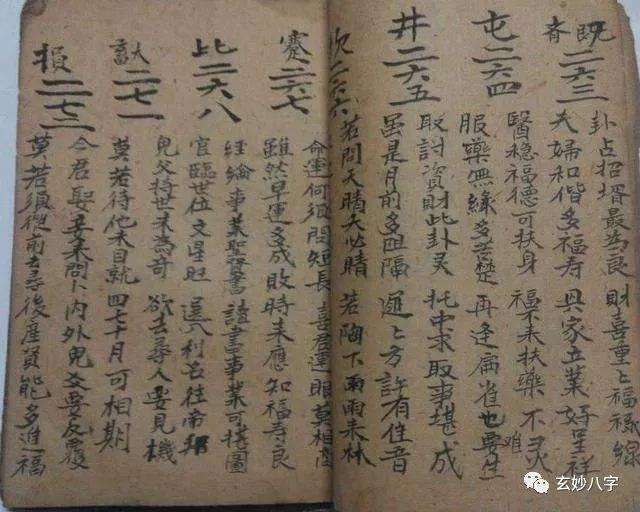 既
齐
二六三
卦占招壻最為良 財喜重上福祿綿
夫婦和偕多福寿 興家立業好呈祥
屯
二六四
醫稳福德可扶身 福不来扶藥不灵
服藥無緣多苦楚 再逢扁省也难要生
井
二六五
取討資財此卦灵 托中求取事堪成
虽是月前多阻隔 迴上方許有佳音
坎
二六六
若問天晴天必晴 若陶下雨雨来林
蹇
二六七
命運何須問短長 喜君運眼莫相
雖然早運多成敗 時来應知福寿良
比
二六八
經綸事業聖賢書 該書事業可橫圖
官臨世位文星旺 選八利名往帝
兒父持世未為奇 欲去尋人要見機
二七一
莫若待他来自就 四七十月可相期
損
二七二
令君娶妻来問卜 内外兒交要反覆
莫若須從前去尋 後產貲能多進福
玄妙八字